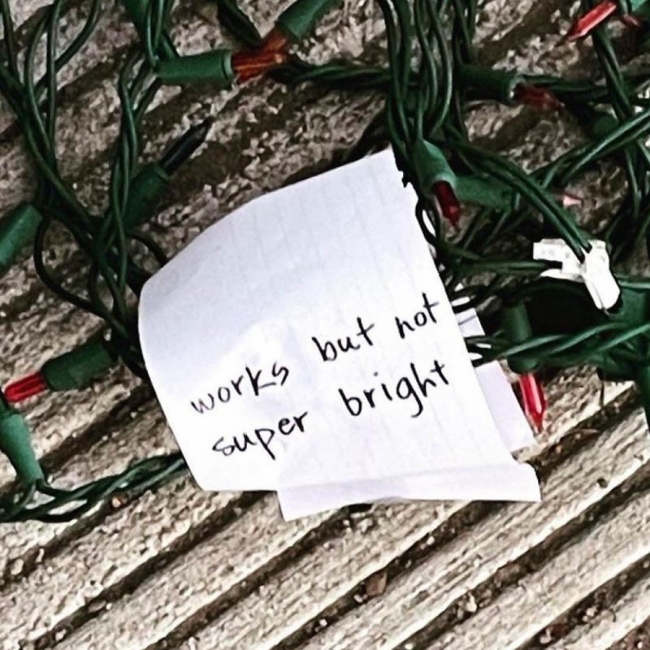 works but not
super bright